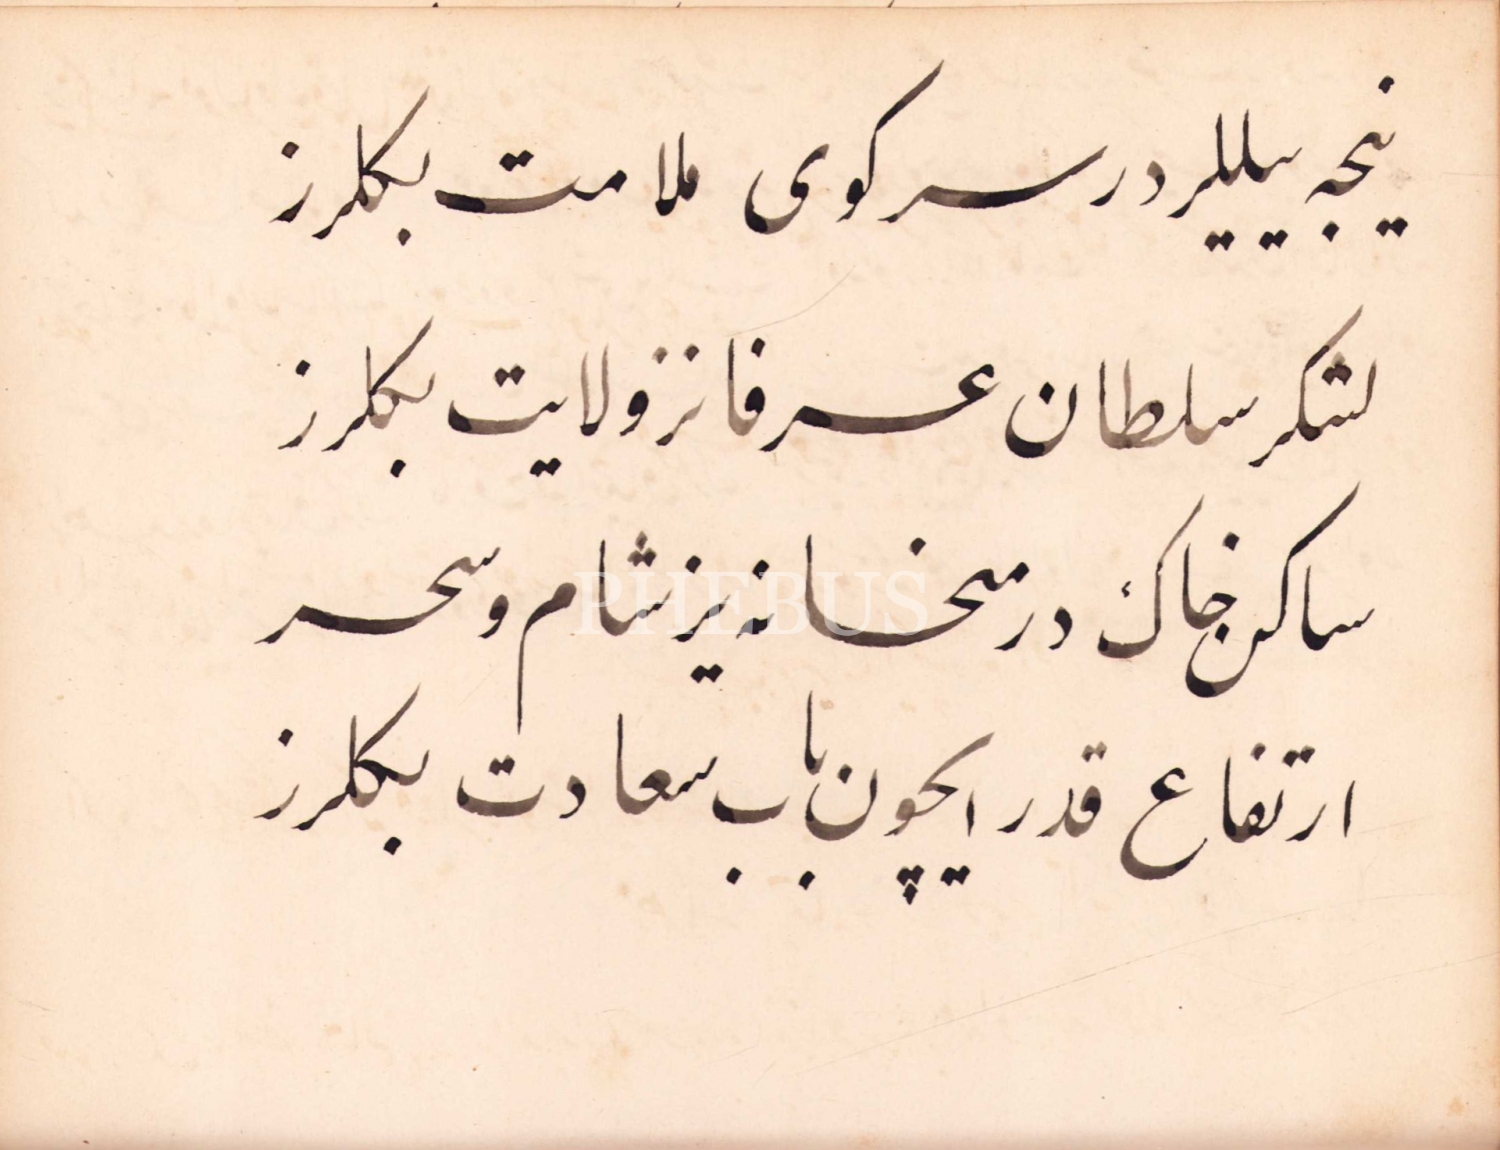 نیجه ییللر در سر کوی ملامت بکلرز
لشکر سلطان عرفانز ولایت بکلرز
ساکن خاك در میخانه یز شام و سحر
ارتفاع قدر ایچون باب سعادت بکلرز
PHEBUS